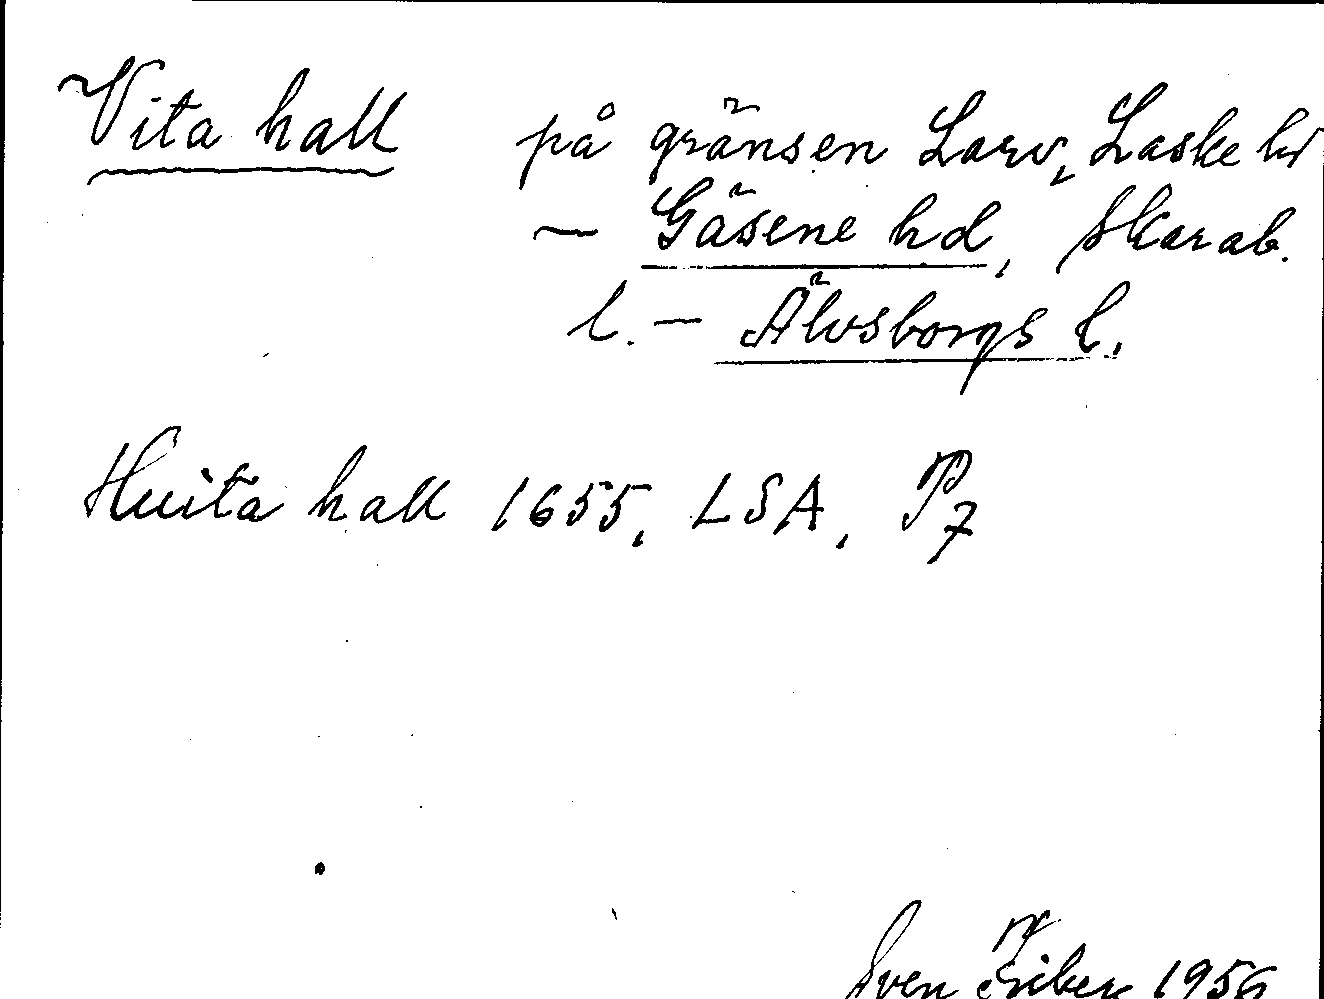 Vita hall på gränsen Larv, Laske hd
— Gäsene hd, Skarab.
l. — Älvsborgs l.
Huita hall 1655, LSA, P7
Sven Friber 1956